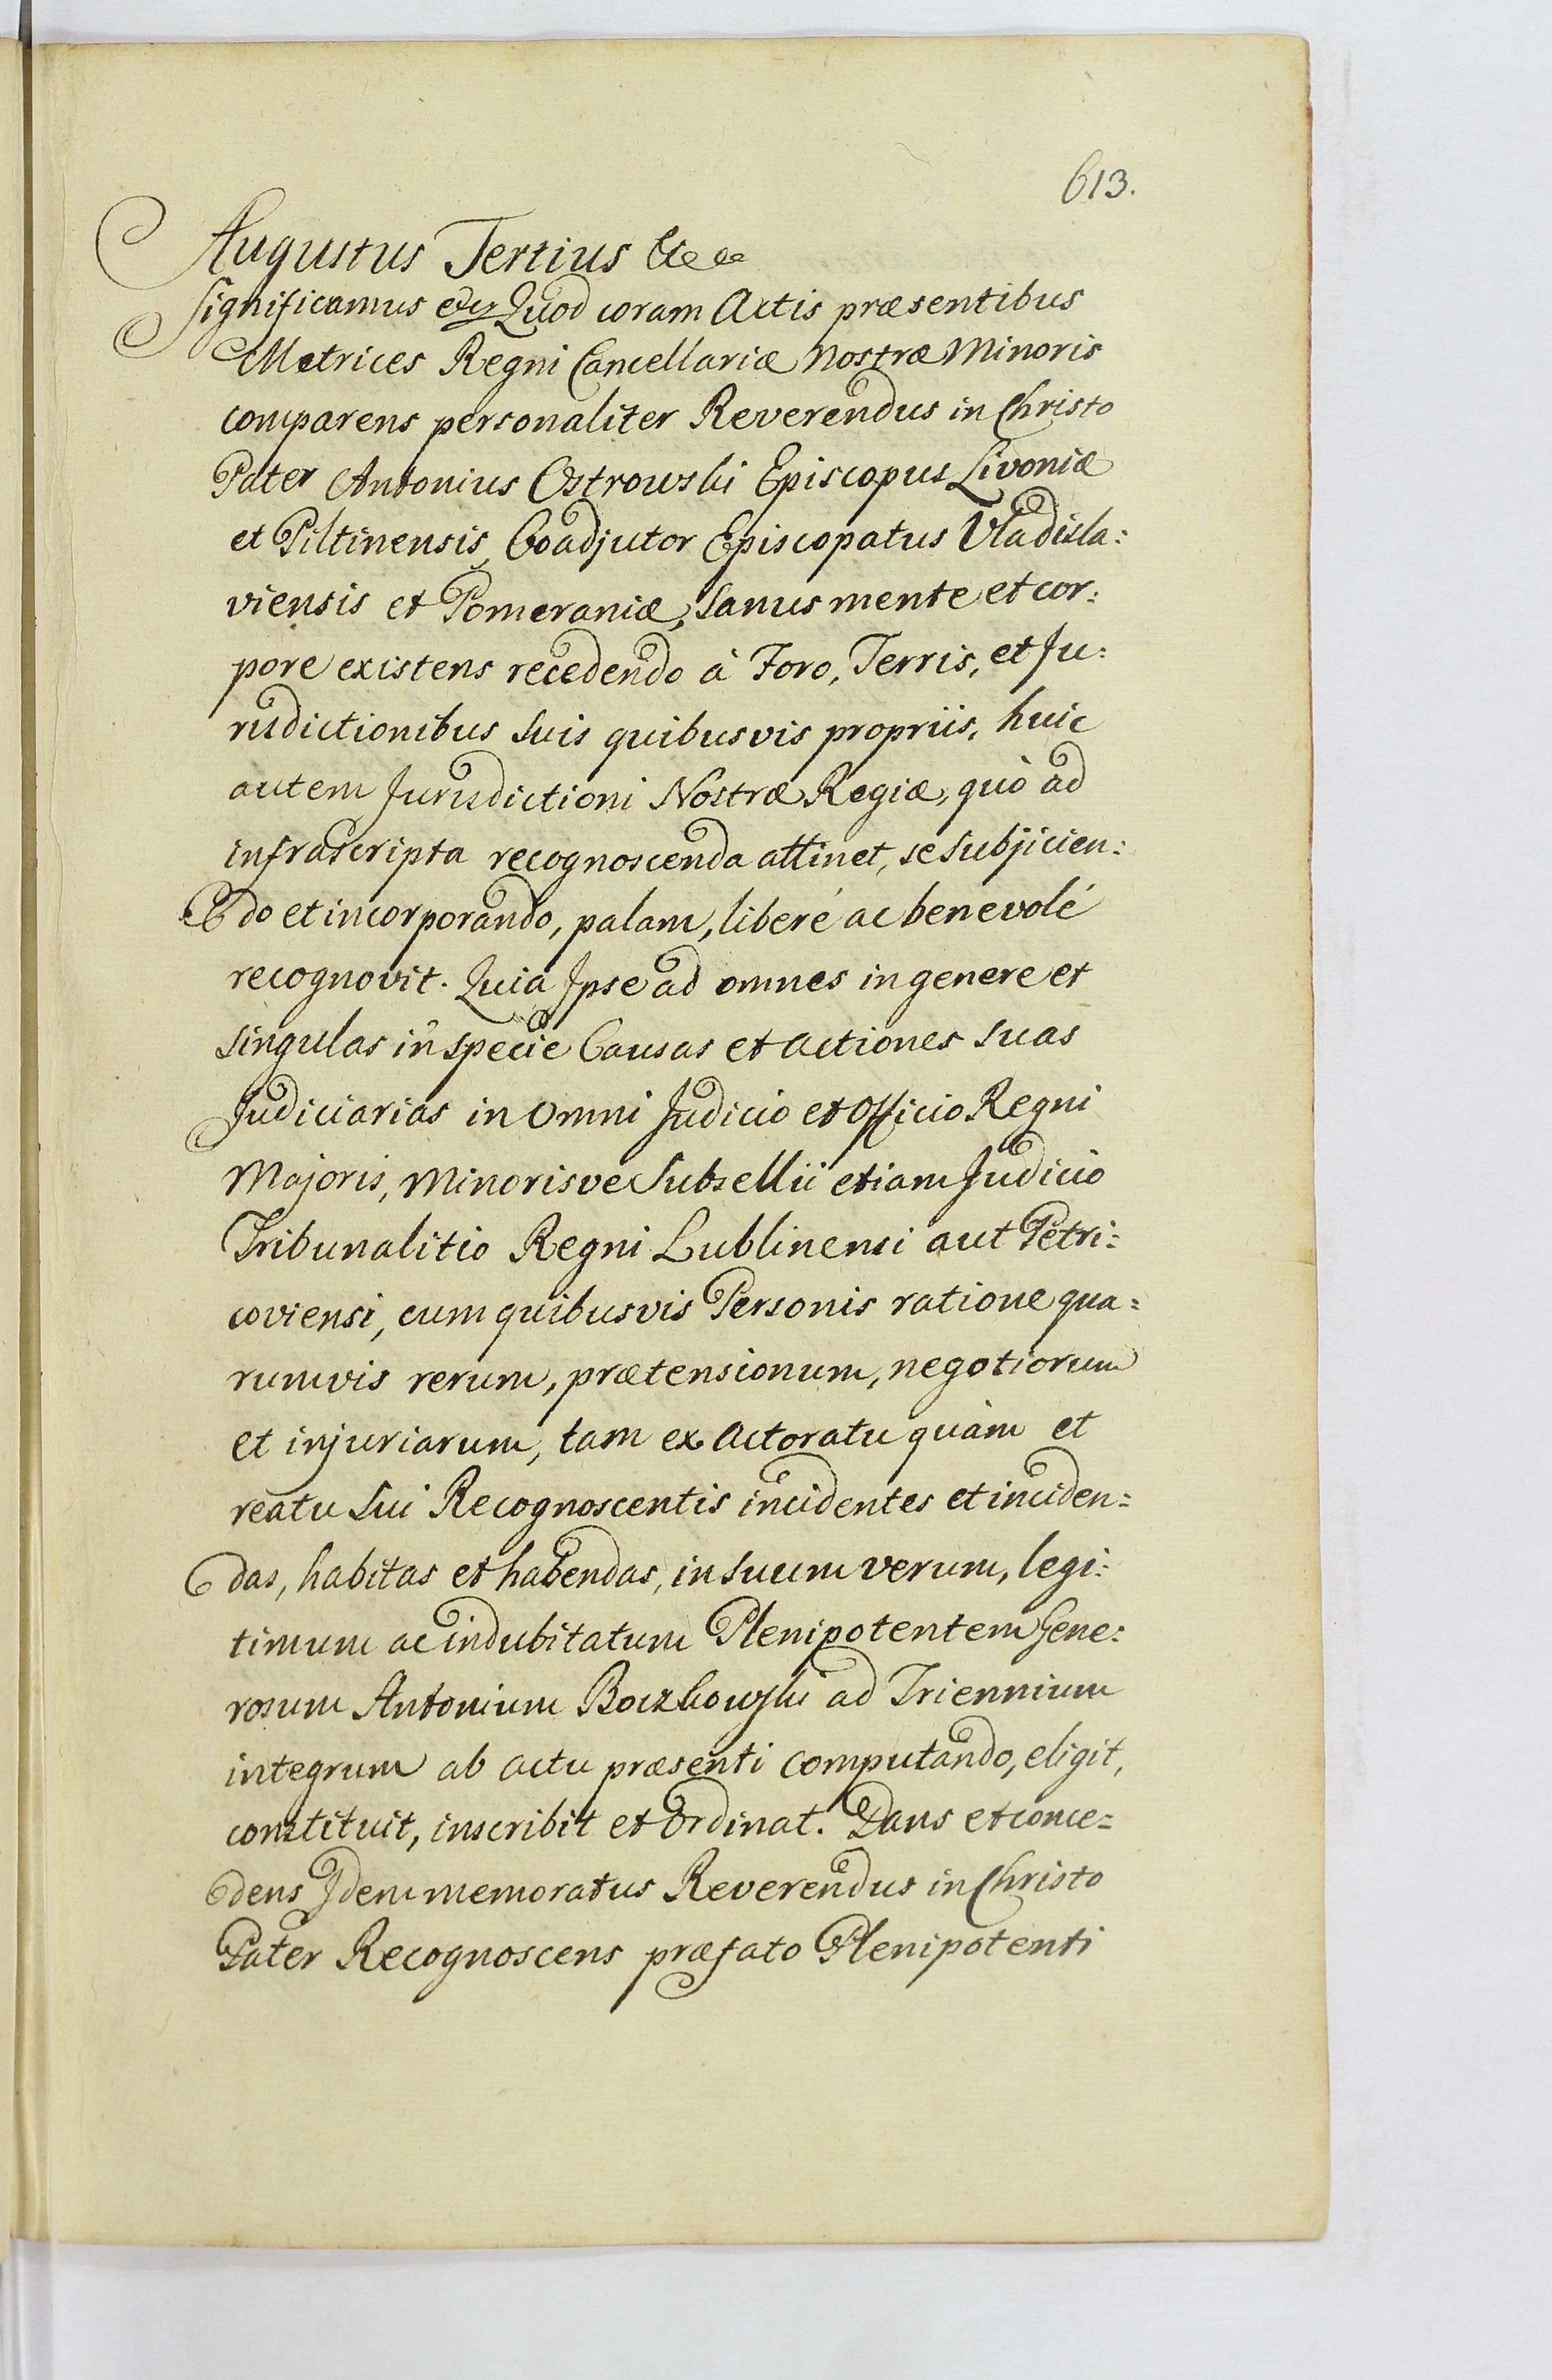 613.
Augustus Tertius &c
Significamus &c Quod coram Actis præsentibus
Metrices Regni Cancellariæ Nostræ Minoris
comparens personaliter Reverendus in Christo
Pater Antonius Ostrowski Episcopus Livoniæ
et Piltinensis, Coadjutor Episcopatus Vladisla:
viensis et Pomeraniæ, sanus mente et cor:
pore existens recedendo à Foro, Terris, et Ju:
risdictionibus suis quibusvis propriis, huic
autem Jurisdictioni Nostræ Regiæ, quò ad
infrascripta recognoscenda attinet, se subjicien:
do et incorporando, palam, liberé ac benevolé
recognovit. Quia Ipse ad omnes in genere et
singulas in specie Causas et actiones suas
Judiciarias in omni Judicio et Officio Regni
Majoris, Minorisve Subsellii etiam Judicio
Tribunalitio Regni Lublinensi aut Petri:
coviensi, cum quibusvis Personis ratione qua=
rumvis rerum, prætensionum, negotiorum
et injuriarum, tam ex actoratu quàm et
reatu sui Recognoscentis incidentes et inciden=
das, habitas et habendas, in suum verum, legi:
timum ac indubitatum Plenipotentem Gene:
rosum Antonium Boczkowski ad Triennium
integrum ab actu præsenti computando, eligit,
constituit, inscribit et ordinat. Dans et conce=
dens Idem memoratus Reverendus in Christo
Pater Recognoscens præfato Plenipotenti